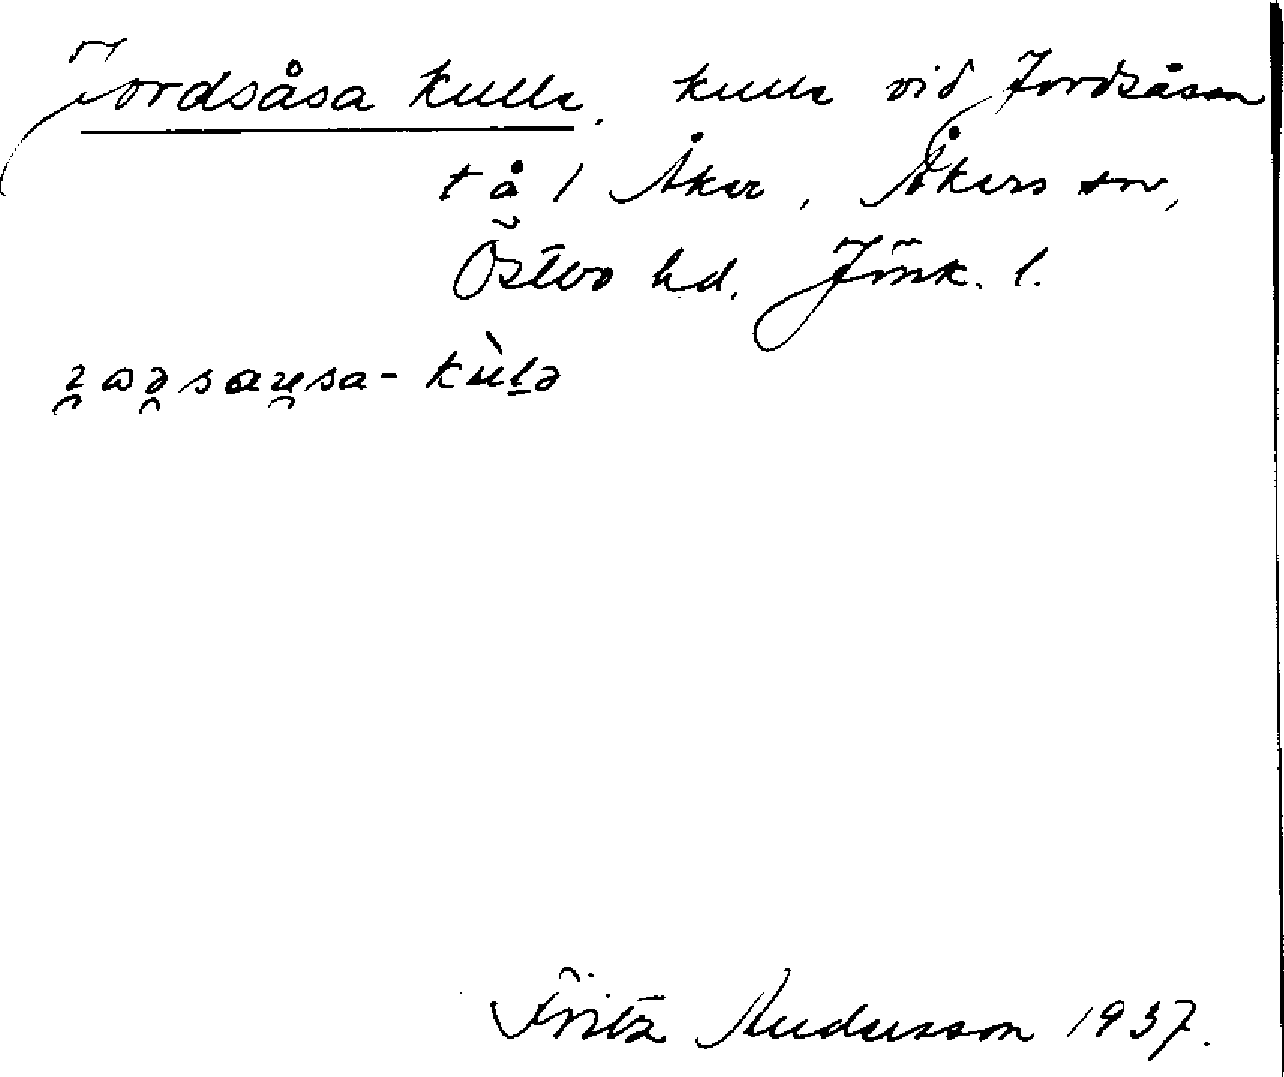 Jordsåsa kulle, kulle vid Jordsåsen
på 1 Åker, Åkers sn,
Östbo hd. Jönk. l.
Fritz Andersson 1937.